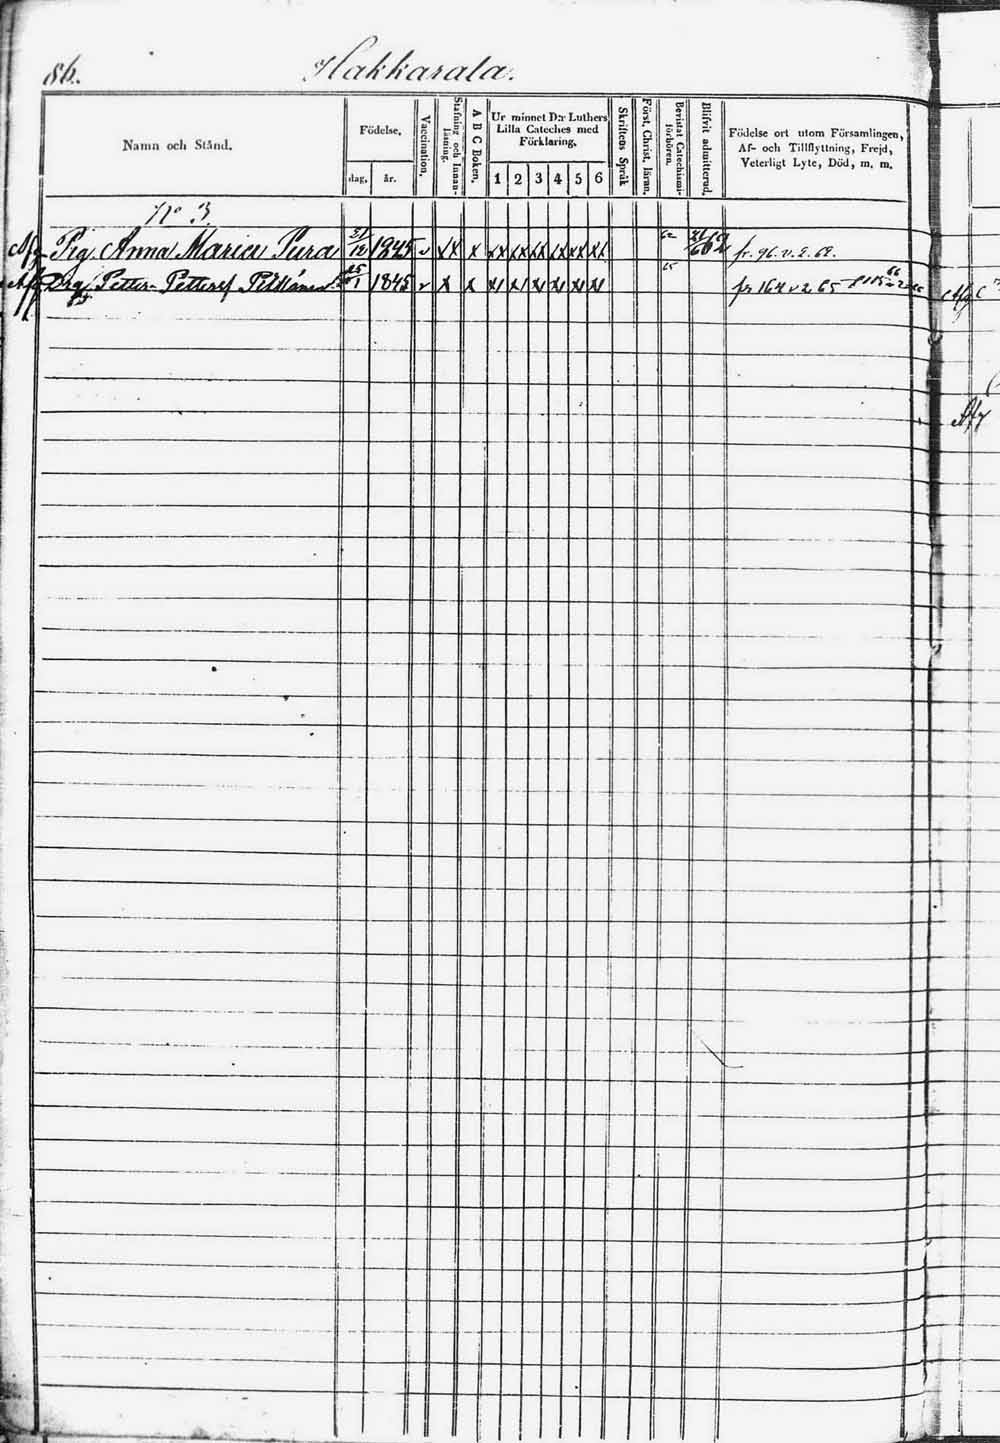 86. Hakkarala.
Namn och Stånd. Födelse, dag. år. Vaccination. Stafning och Innanläsning. A B C Boken. Ur minnet D:r Luthers Lilla Cateches med Förklaring, 1 2 3 4 5 6 Skriftens Språk Först. Christ. läran. Bevistat Catechismiförhören. Blifvit admitterad. Födelse ort utom Församlingen, Af- och Tillflyttning, Frejd, Veterligt Lyte, Död, m. m.
No 3.
Afg Pig Anna Maria Pura 31/12 1845 v x x x x x x x x x 62 fr. 96. v. 2. 62.
Afg Drg Petter Pettersf Pitkänen 25/1 1845 v x x x x x x x x 65 fr 164 v 2 65
Afg
Afg